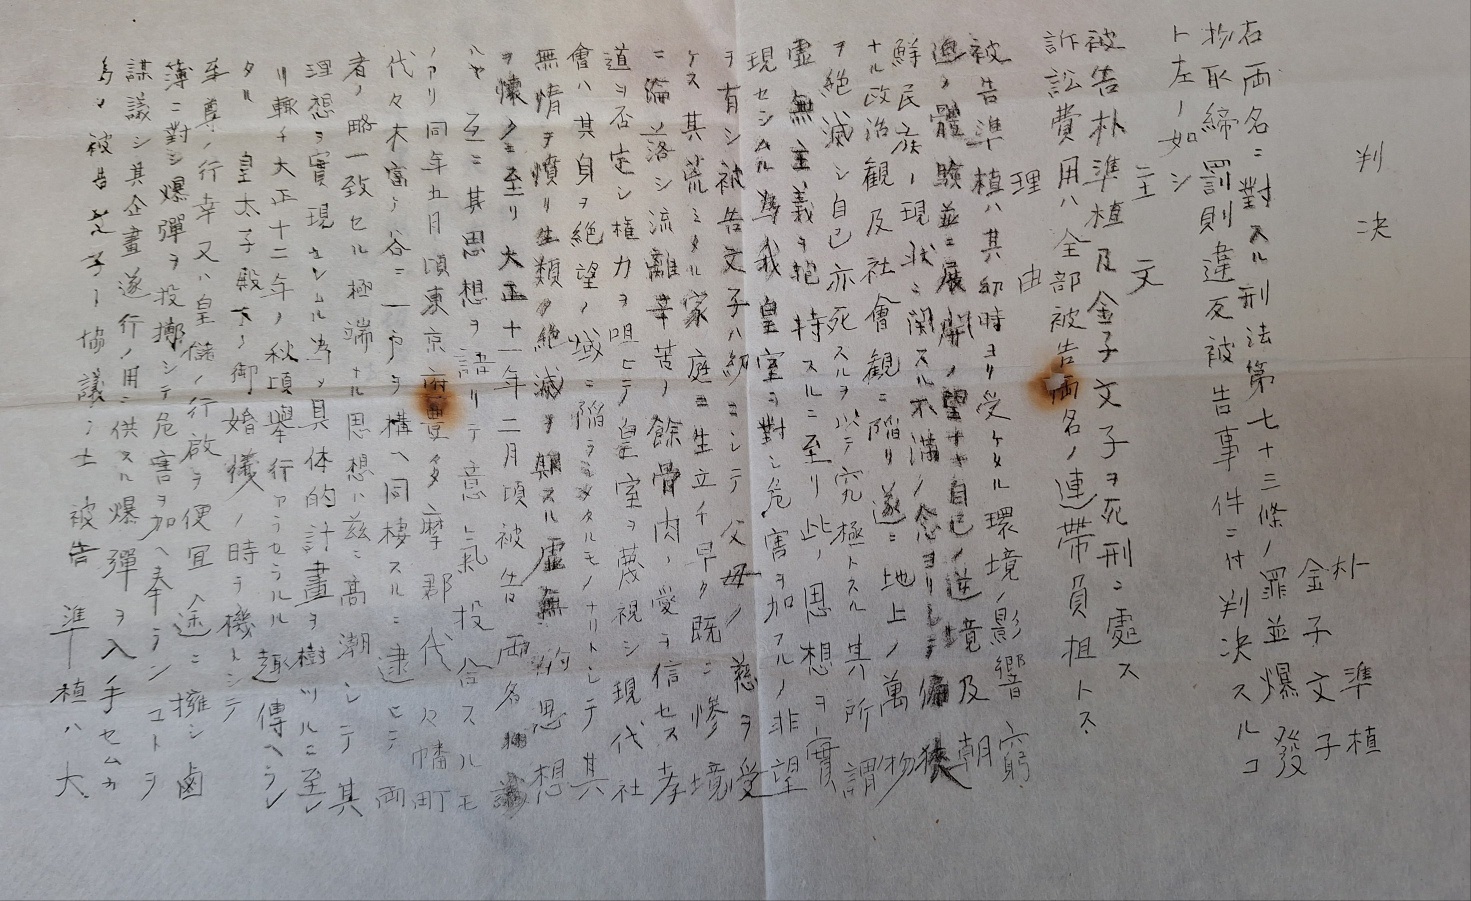 判決
朴準植
金子文子
右両名ニ對スル刑法第七十三條ノ罪並爆發
物取締罰則違反被告事件ニ付判決スルコ
ト左ノ如シ
主文
被告朴準植及金子文子ヲ死刑ニ處ス
訴訟費用ハ全部被告両名ノ連帯負担トス
理由
被告準植ハ其幼時ヨリ受ケタル環境ノ影響窮
迫ノ體験並ニ展開ノ望ナキ自己ノ逆境及朝
鮮民族ノ現状ニ関スル不満ノ念ヨリシテ偏狭
ナル政治観及社會観ニ陥リ遂ニ地上ノ萬物
ヲ絶滅シ自己亦死スルヲ以テ究極トスル其所謂
虚無主義ヲ抱持スルニ至リ此ノ思想ヲ實
現セシムル為我皇室ニ對シ危害ヲ加フルノ非望
ヲ有シ被告文子ハ幼ニシテ父母ノ慈ヲ受
ケス其荒ミタル家庭ニ生立チ早ク既ニ惨境
ニ淪落シ流離辛苦ノ餘骨肉ノ愛ヲ信セス孝
道ヲ否定シ権力ヲ咀ヒテ皇室ヲ蔑視シ現代社
會ハ其身ヲ絶望ノ域ニ陥ラシメタルモノナリトシテ其
無情ヲ憤リ生類ノ絶滅ヲ期スル虚無的思想
ヲ懐クニ至リ大正十一年二月頃被告両名相識
ルヤ互ニ其思想ヲ語リテ意氣投合スルモ
ノアリ同年五月頃東京府豊多摩郡代々幡町
代々木富ヶ谷ニ一戸ヲ構ヘ同棲スルニ逮ヒテ両
者ノ略一致セル極端ナル思想ハ茲ニ高潮シテ其
理想ヲ實現セシムル為メ具体的計畫ヲ樹ツルニ至レ
リ輒チ大正十二年ノ秋頃擧行アラセラルル趣傳ヘラレ
タル皇太子殿下ノ御婚儀ノ時ヲ機トシテ
至尊ノ行幸又ハ皇儲ノ行啓ヲ便宜ノ途ニ擁シ鹵
簿ニ對シ爆彈ヲ投擲シテ危害ヲ加ヘ奉ランコトヲ
謀議シ其企畫遂行ノ用ニ供スル爆彈ヲ入手セムカ
為メ被告文子ト協議ノ上被告準植ハ大